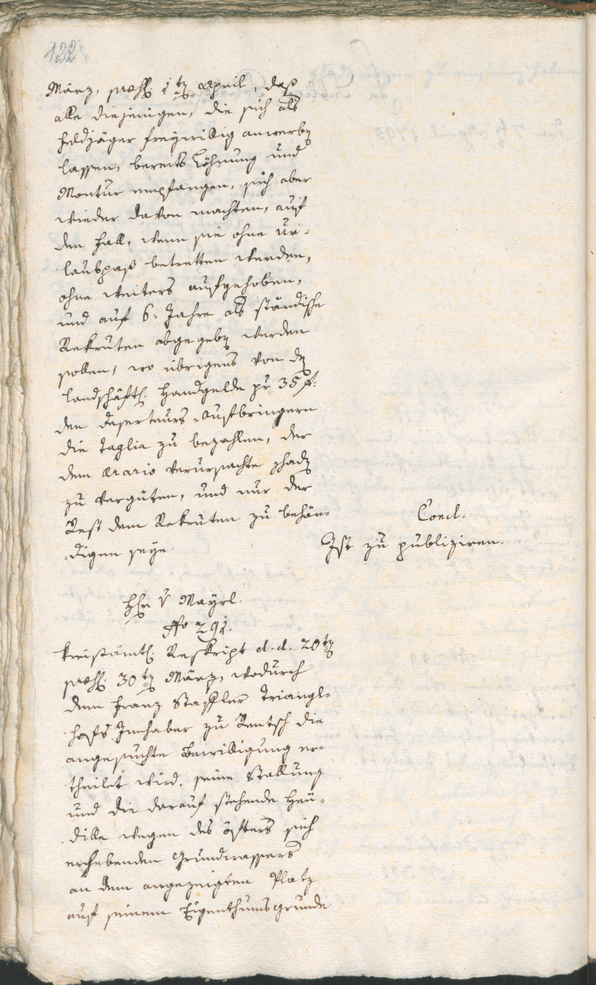 122
März, præs. 1ten April, daß
alle diejenigen, die sich als
Feldjäger freywillig anwerben
lassen, bereits Löhnung und
Montur empfangen, sich aber
wieder davon machten, auf
den Fall, wenn sie ohne Ur-
laubpaß betretten werden,
ohne weiters aufgehoben,
und auf 6. Jahre als ständische
Rekruten abgegeben werden
sollen, wo übrigens von den
landschäftl. Handgelde pr 35 f.
den Deserteurs-Aufbringern
die Taglia zu bezahlen, der
dem Ærario verursachte Schaden
zu vergüten, und nur der
Rest dem Rekruten zu behän-
digen seye.
Concl.
Ist zu publiziren.
Hr. v Mayrl.
No 291.
Kreisämtl. Reskript d. d. 20ten
præs. 30ten März, wodurch
dem Franz Stafler Triangl-
hofs Innhaber zu Rentsch die
angesuchte Bewilligung er-
theilet wird, seine Stallung
und die darauf stehende Heu-
dille wegen des öfters sich
erhebenden Grundwassers
an dem angezeigten Platz
auf seinem Eigenthumsgrunde